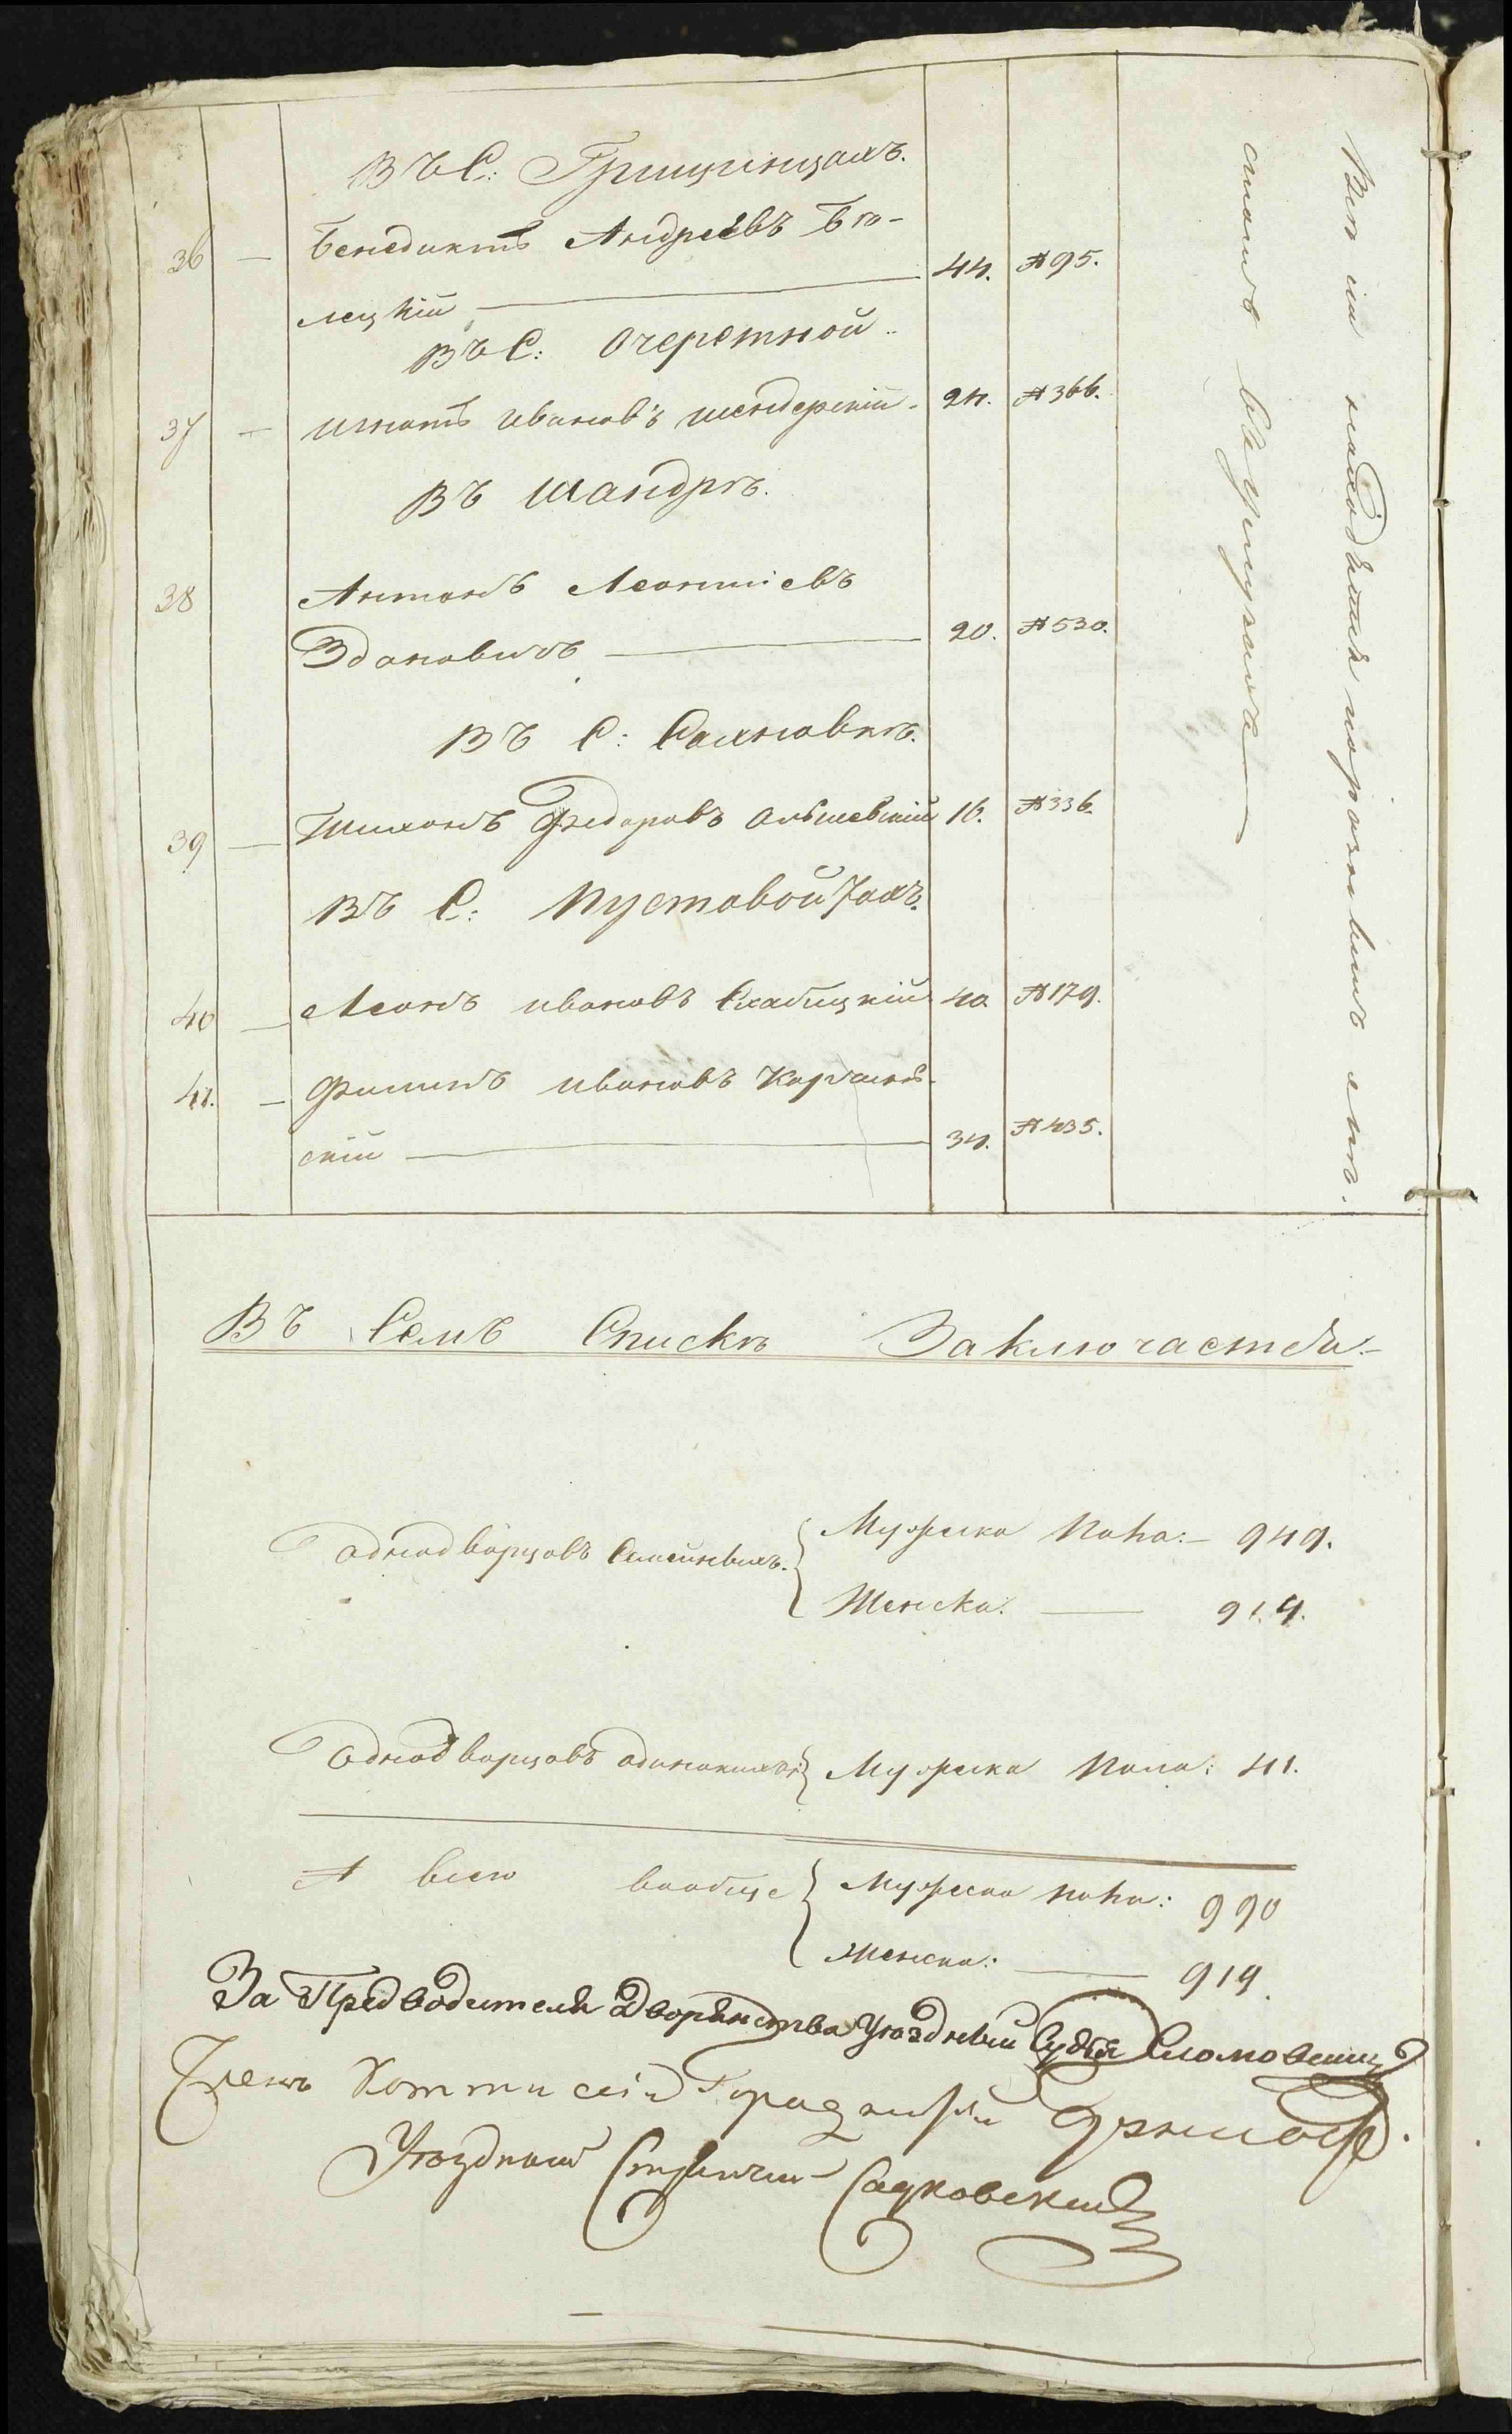 Въ С: Грищинцахъ.
36 — Бенедиктъ Андреевъ Бѣ-
лецкій — 44. № 95.
Въ С: Очеретной.
37 — Игнатъ Ивановъ Шендерскій. 24. № 366.
Въ Шандрѣ.
38 Антонъ Леонтіевъ
Здановичъ — 20. № 530.
Въ С: Сахновкѣ.
39 — Тихонъ Федоровъ Ольшевскій 16. № 336.
Въ С: Пустовойтахъ.
40 — Леонъ Ивановъ Слабицкій 40. № 179.
41. — Филипъ Ивановъ
скій — 34. № 435.
Всѣ находятся по разнымъ
Въ Семъ Спискѣ Заключается:
Однодворцовъ Семейныхъ. Мужеска Пола: — 949.
Женска: — 914.
Однодворцовъ одинокихъ: Мужеска Пола: 41.
А всего вообще Мужеска пола: 990
Женска: — 914.
За Предводителя Дворянства Уѣздный Судья
Членъ Коммисіи Городничій
Уѣздный Стряпчій Садковскій